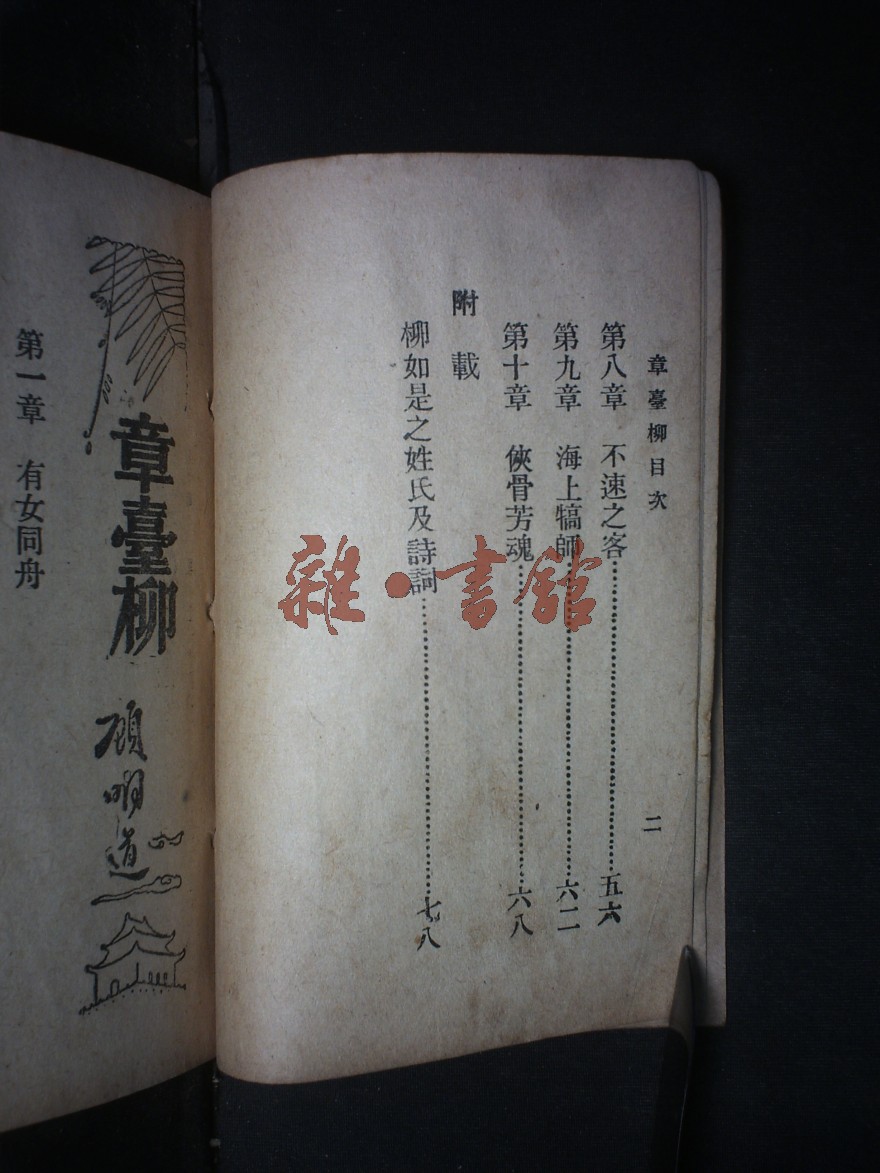 章臺柳目次
二
第八章　不速之客…………五六
第九章　海上犒師…………六二
第十章　俠骨芳魂…………六八
附載
柳如是之姓氏及詩詞…………七八
章臺柳
顧明道
第一章　有女同舟
雜·書館